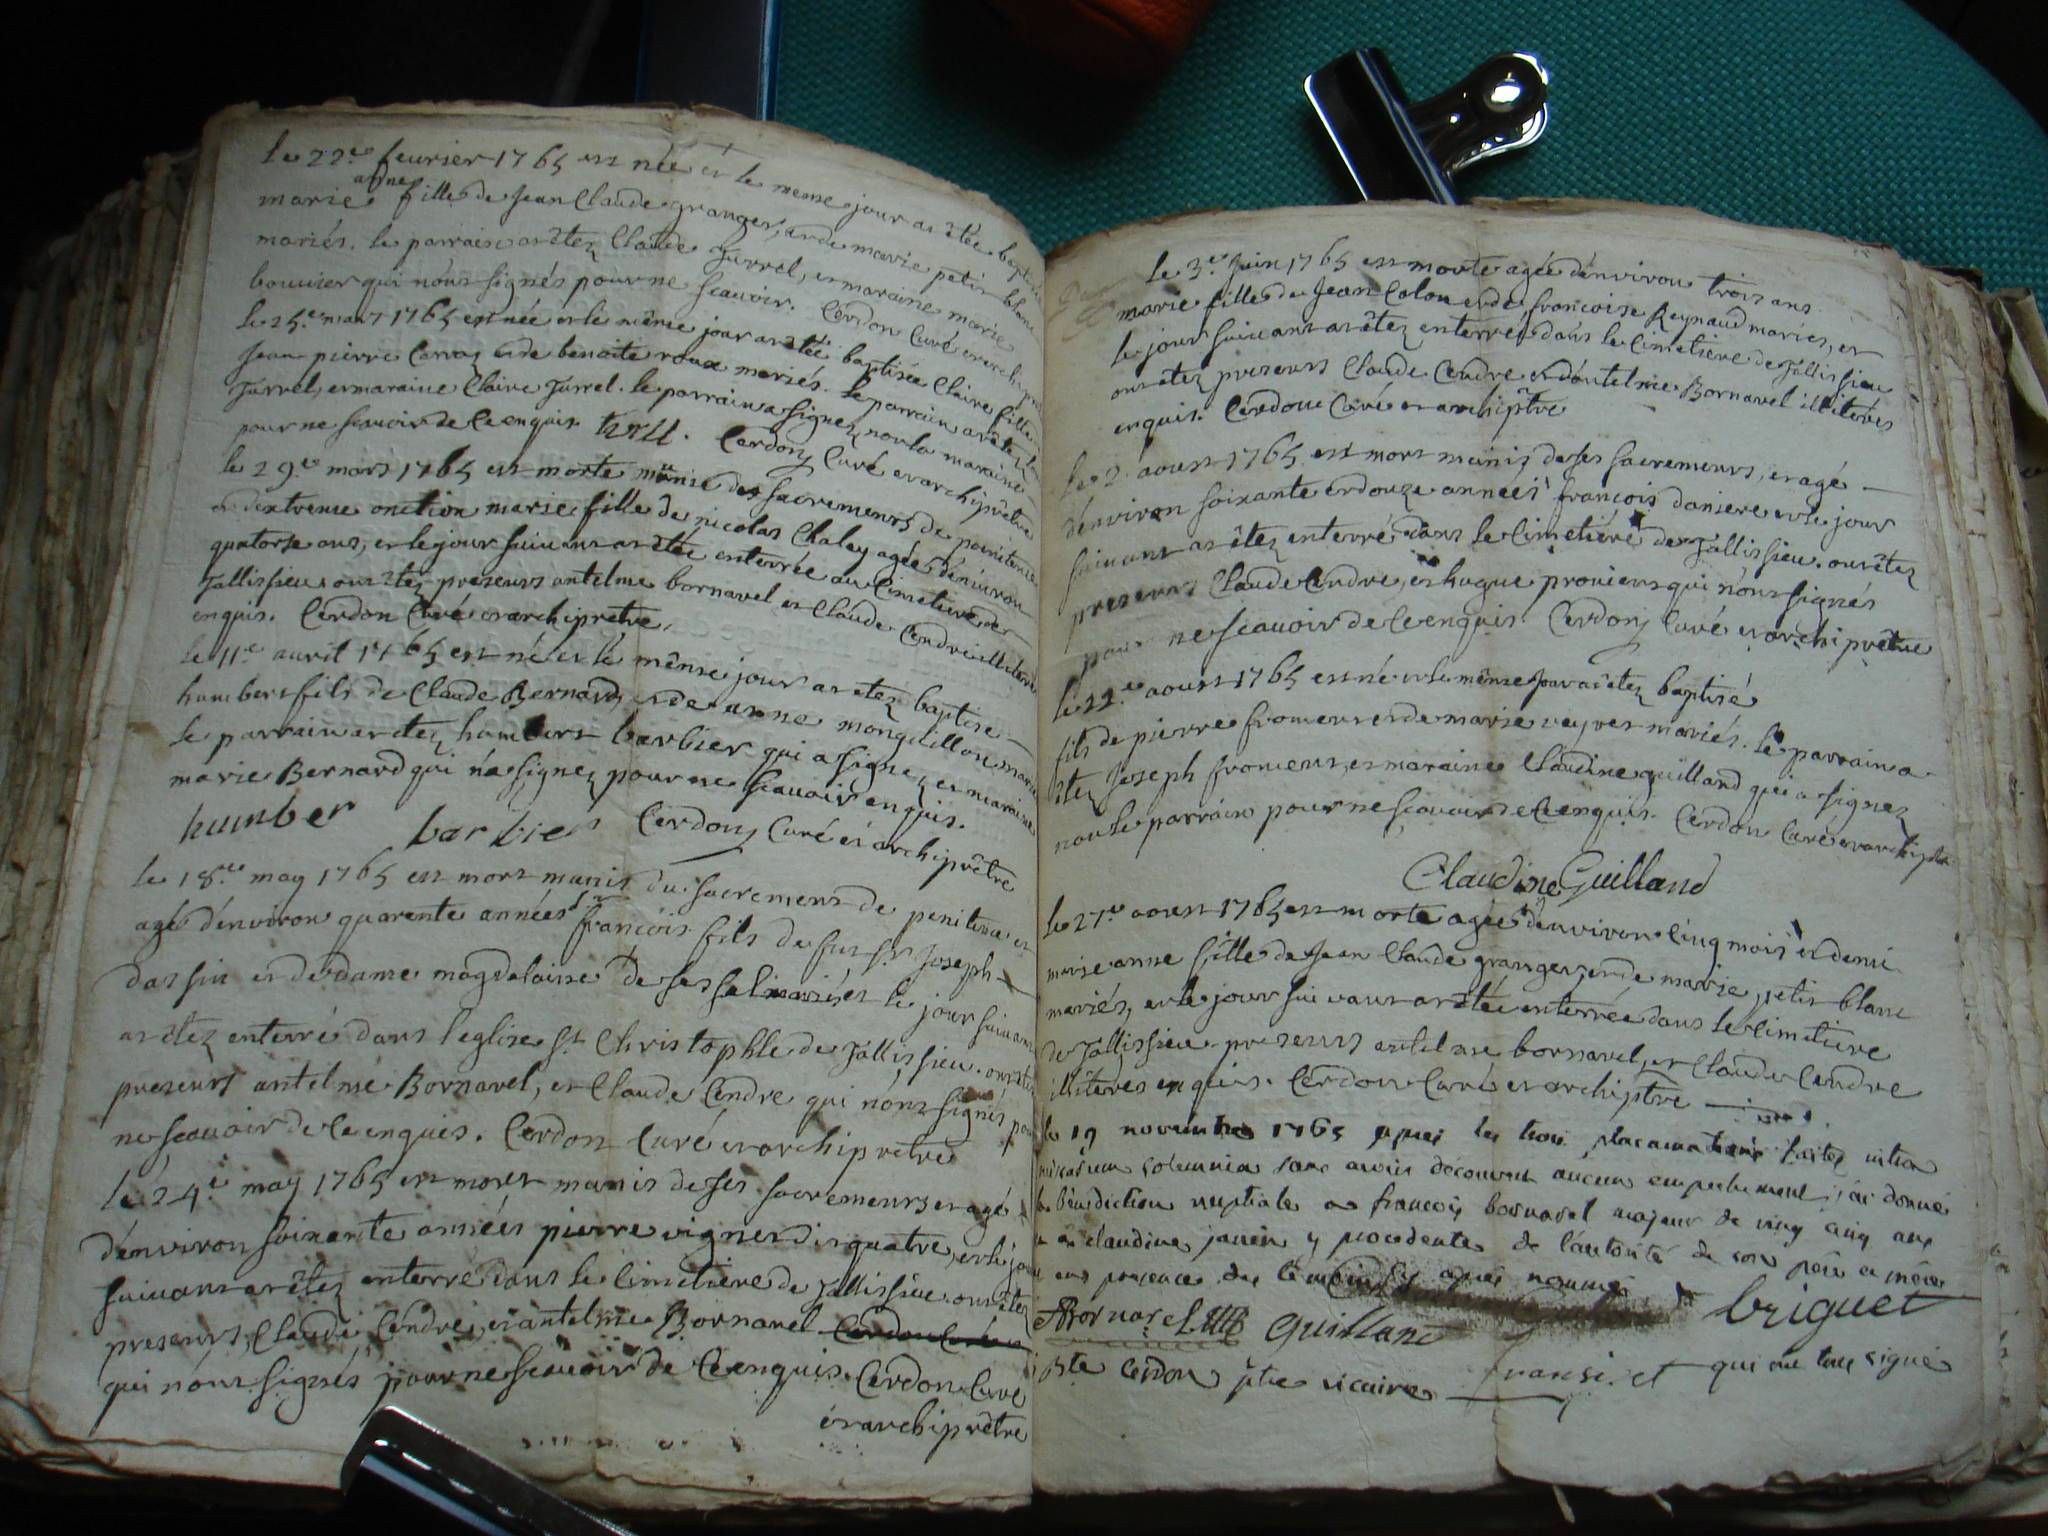 le 22.e feurier 1765 est née et le meme jour a etée baptisée
marie anne fille de Jean Claude granger, et de marie petit blanc
mariés. le parrain a etez Claude Jurrel, et maraine marie
bouuier qui n'ont signés pour ne scauoir. Cerdon Curé et archiprêtre
le 25.e mars 1765 est née et le même jour a etée baptisée Claire fille
Jean pierre et de benoite roux mariés. le parrain a etez
Jurrel, et maraine Claire Jurrel. le parrain a signez non la maraine
pour ne scauoir de Ce enquis. Cerdon Curé et archiprêtre
le 29.e mars 1765 est morte munie des sacrements de penitence
et d'extreme onction marie fille de nicolas Chaley agée d'enuiron
quatorse ans, et le jour suiuant a etée enterrée au Cimetiere de
Jallissieu ont etez presents antelme bornavel et Claude Cendre illiteres
enquis. Cerdon Curé et archiprêtre.
le 11.e auril 1765 est né et le même jour a etez baptise
humbert fils de Claude Bernard, et de anne monguillon mariés
le parrain a etez humbert barbier qui a signe, et maraine
marie Bernard qui n'a signez pour ne scauoir enquis.
humber barbier Cerdon Curé et archiprêtre
le 18.e may 1765 est mort munis du sacrement de penitence et
agé d'enuiron quarente années françois fils de fut sr Joseph
dassin et de dame magdelaine de mariés et le jour suiuant
a etez enterré dans l'eglise St Christophle de Jallissieu. ont etez
presents antelme Bornavel, et Claude Cendre qui n'ont signés pour
ne scauoir de Ce enquis. Cerdon Curé et archiprêtre
le 24.e may 1765 est mort munis de ses sacrements et agé
d'enuiron soixante années pierre vigner dir quatre, et le jour
suiuant a etez enterré dans le Cimetiere de Jallissieu. ont etez
presents, Claude Cendre, et antelme Bornavel
qui n'ont signés pour ne scauoir de Ce enquis. Cerdon Curé
et archiprêtre
le 3.e Juin 1765 est morte agée d'enuiron trois ans
marie fille de Jean Colon et de francoise Reynaud mariés, et
le jour suiuant a etez enterrée dans le Cimetiere de Jallissieu
ont etez presents Claude Cendre et d'antelme Bornavel illiterés
enquis. Cerdon Curé et archiptre
le 2. aoust 1765 est mort munis de ses sacrements, et agé
d'enuiron soixante et douze années françois daniere et le jour
suiuant a etez enterré dans le Cimetiére de Jallissieu. ont etez
presents Claude Cendre, et hugue proniere qui n'ont signés
pour ne scauoir de Ce enquis. Cerdon Curé et archiprêtre
le 22.e aoust 1765 est né et le même jour a etez baptisé
fils de pierre froment et de marie veyret mariés. le parrain a
etez Joseph froment, et maraine Claudine guilland qui a signez
non le parrain pour ne scauoir de Ce enquis. Cerdon Curé et archiptre
Claudine Guilland
le 27.e aoust 1765 est morte agée d'enuiron cinq mois et demi
marie anne fille de Jean Claude granger, et de marie petit blanc
mariés, et le jour suiuant a etée enterrée dans le Cimetiere
de Jallissieu presents antelme bornavel, et Claude Cendre
illiteres enquis. Cerdon Curé et archiptre
le 19 novembre 1765 apres les trois placamations faites intra
solemnia sans avoir découvert aucun empechement, j'ai donné
la bénediction nuptiale a francois bornarel majeur de vingt cinq ans
et a claudine janin y procedente de l'autorité de son père et mère
en presence des témoins apres nommé
Bornarel guilland briguet
pbre cerdon ptre vicaire fransi. et qui ont tous signé